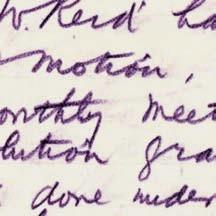 W. Reid ha
motion,
onthly meet
lution gra
done under